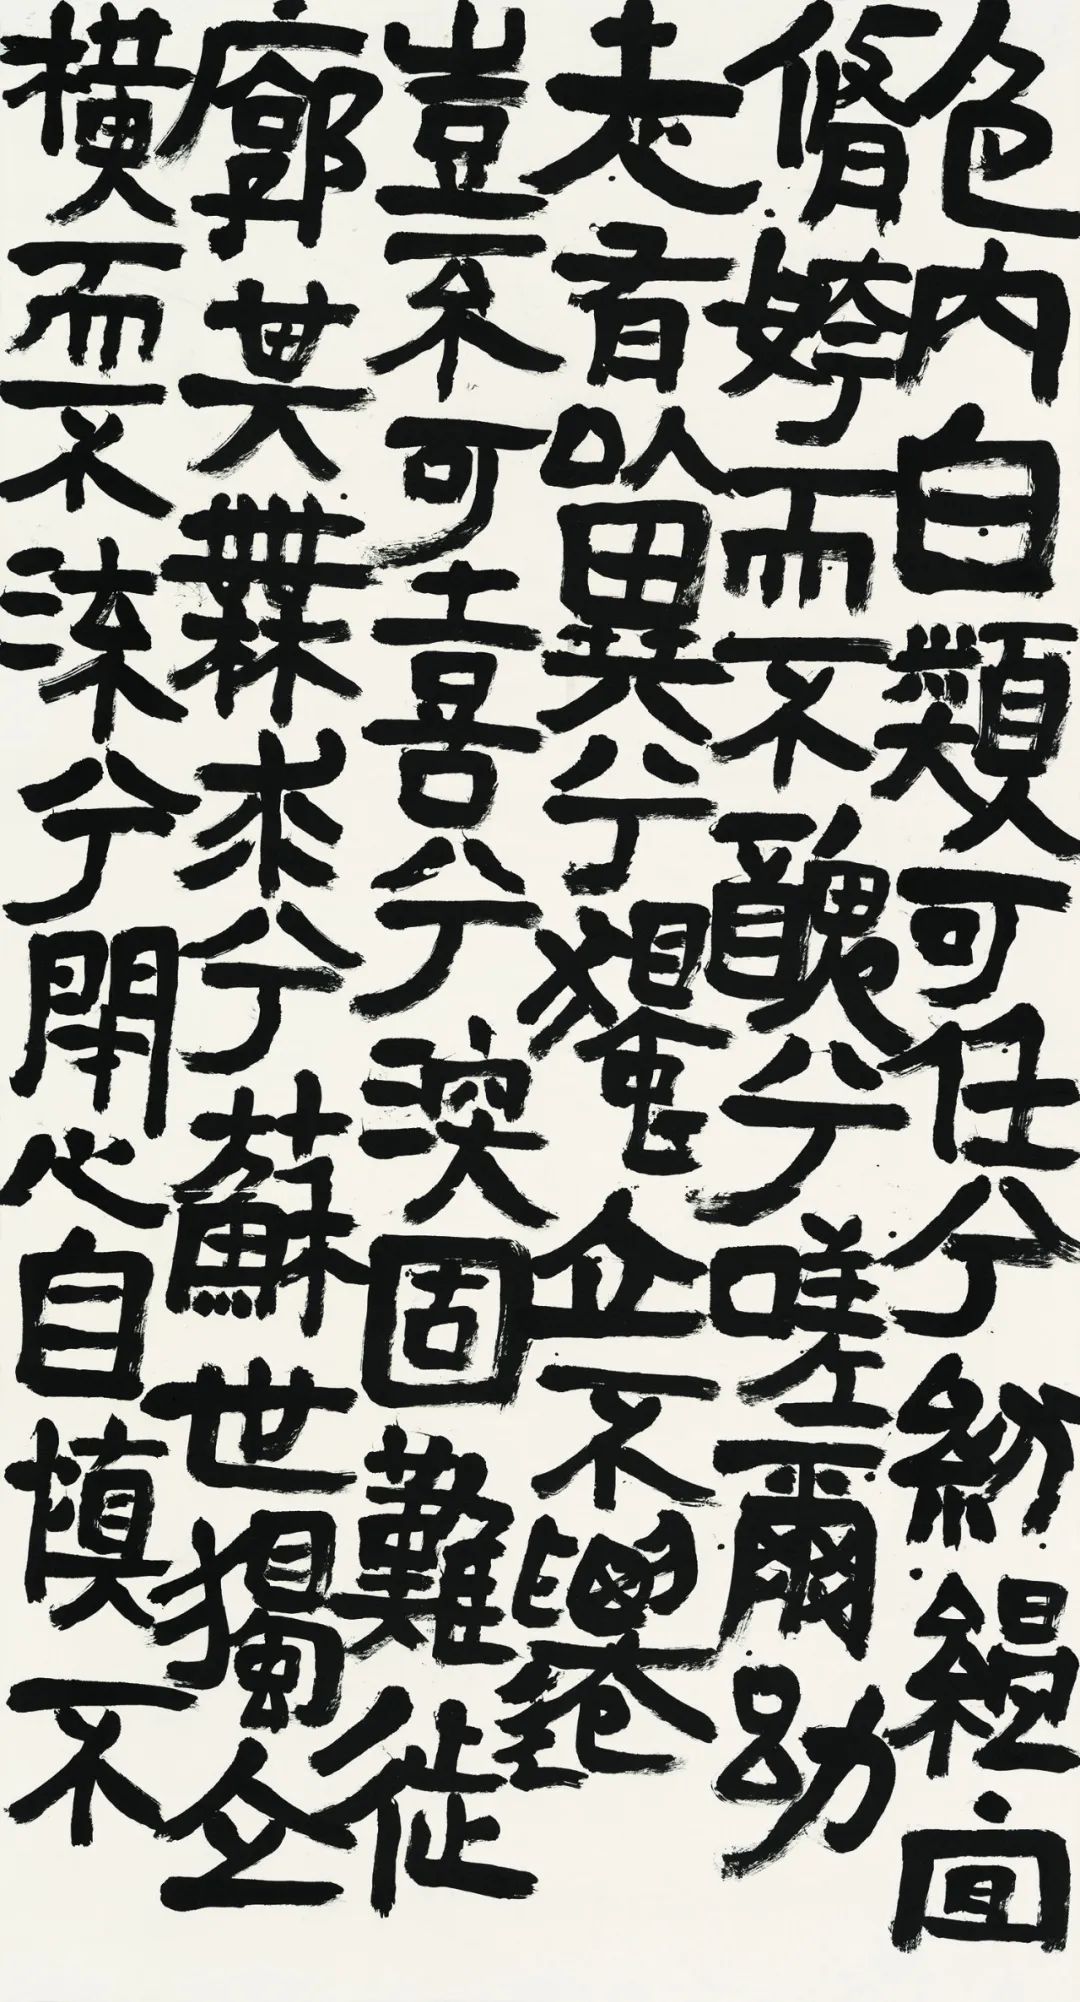 色内白類可任兮紛緼宜
脩姱而不醜兮嗟爾幼
志有以異兮獨立不遷
豈不可喜兮深固難徙
廓其無求兮蘇世獨立
横而不流兮閉心自慎不